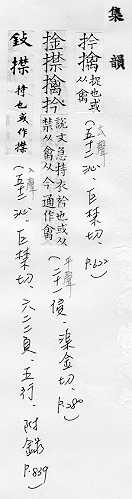 集韻
拎擒 捉也或从禽
去聲
(五十二沁、巨禁切、P.622)
捦襟擒扲 說文急持衣衿也或从禁从禽从今通作禽
平聲
(二十一侵、渠金切、P.280)
捦襟 持也或作襟
去聲
(五十二沁、巨禁切、六二二頁、五行、附錄P.839)